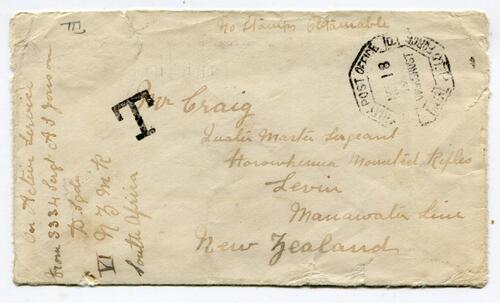 No Stamps Obtainable
T
Mr Craig
Quater Master Sergeant
Horowhenua Mounted Rifles
Levin
Manawater Line
New Zealand
On Active Service
From 3334 Sergt A S
D Sqdn
VI N Z M R
South Africa
POST OFFICE
18